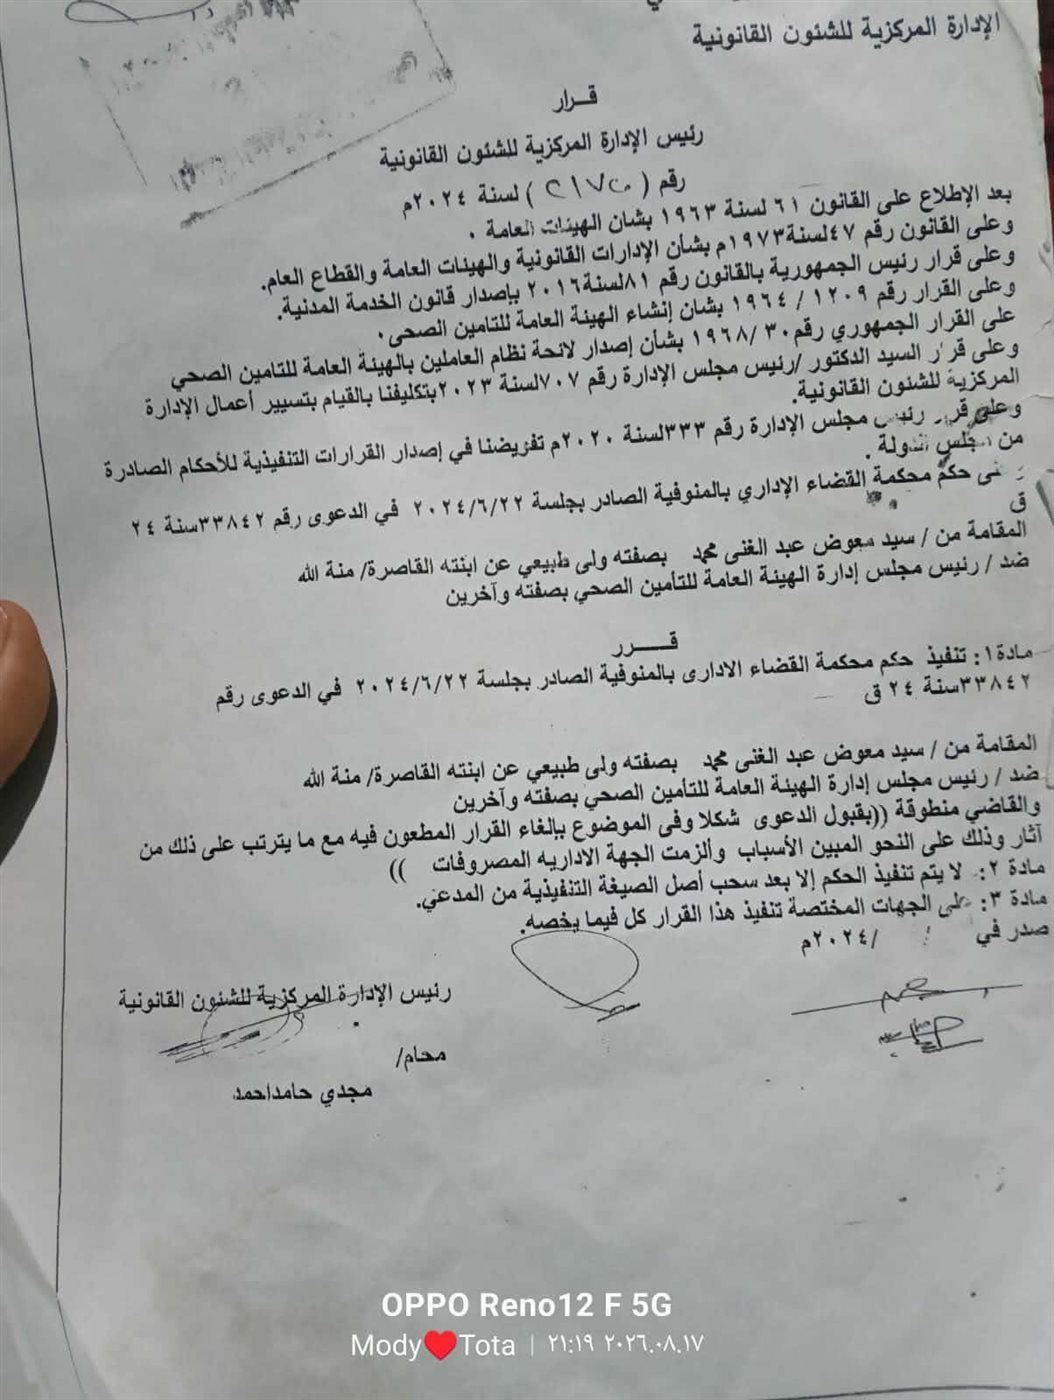 الإدارة المركزية للشئون القانونية
قـــرار
رئيس الإدارة المركزية للشئون القانونية
رقم ( ) لسنة ٢٠٢٤م
بعد الإطلاع على القانون ٦١ لسنة ١٩٦٣ بشان الهيئات العامة .
وعلى القانون رقم ٤٧لسنة١٩٧٣م بشأن الإدارات القانونية والهيئات العامة والقطاع العام.
وعلى قرار رئيس الجمهورية بالقانون رقم ٨١لسنة٢٠١٦ بإصدار قانون الخدمة المدنية.
وعلى القرار رقم ١٢٠٩ / ١٩٦٤ بشان إنشاء الهيئة العامة للتامين الصحى.
على القرار الجمهوري رقم٣٠ /١٩٦٨ بشأن إصدار لائحة نظام العاملين بالهيئة العامة للتامين الصحي
وعلى قرار السيد الدكتور /رئيس مجلس الإدارة رقم ٧٠٧لسنة ٢٠٢٣بتكليفنا بالقيام بتسيير أعمال الإدارة
المركزية للشئون القانونية.
وعلى قرر رئيس مجلس الإدارة رقم ٣٣٣لسنة ٢٠٢٠م تفريضنا في إصدار القرارات التنفيذية للأحكام الصادرة
من مجلس الدولة .
حكم محكمة القضاء الإداري بالمنوفية الصادر بجلسة ٢٠٢٤/٦/٢٢ في الدعوى رقم ٣٣٨٤٢سنة ٢٤
ق
المقامة من / سيد معوض عبد الغنى محمد بصفته ولى طبيعي عن ابنته القاصرة/ منة الله
ضد / رئيس مجلس إدارة الهيئة العامة للتأمين الصحي بصفته وآخرين
قــــرر
مادة١: تنفيذ حكم محكمة القضاء الادارى بالمنوفية الصادر بجلسة ٢٠٢٤/٦/٢٢ في الدعوى رقم
٣٣٨٤٢سنة ٢٤ ق
المقامة من / سيد معوض عبد الغنى محمد بصفته ولى طبيعي عن ابنته القاصرة/ منة الله
ضد / رئيس مجلس إدارة الهيئة العامة للتأمين الصحي بصفته وآخرين
والقاضي منطوقة ((بقبول الدعوى شكلا وفى الموضوع بإلغاء القرار المطعون فيه مع ما يترتب على ذلك من
آثار وذلك على النحو المبين الأسباب وألزمت الجهة الاداريه المصروفات ))
مادة ٢: لا يتم تنفيذ الحكم إلا بعد سحب أصل الصيغة التنفيذية من المدعي.
مادة ٣: على الجهات المختصة تنفيذ هذا القرار كل فيما يخصه.
صدر في / /٢٠٢٤م
رئيس الإدارة المركزية للشئون القانونية
محام/
مجدي حامداحمد
OPPO Reno12 F 5G
Mody❤Tota | ٢١:١٩ ٢٠٢٦.٠٨.١٧